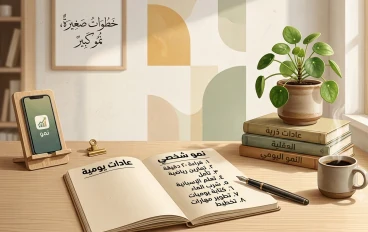 خطوات صغيرة،
نمو كبير
نمو
عادات يومية
نمو شخصي
١. قراءة ٢٠ دقيقة
٢. تمارين رياضية
٣. تأمل
٤. تعلم الإسبانية
٥. شرب الماء
٦. كتابة يوميات
٧. تطوير مهارات
٨. تخطيط
عادات ذرية
العقلية
النمو اليومي